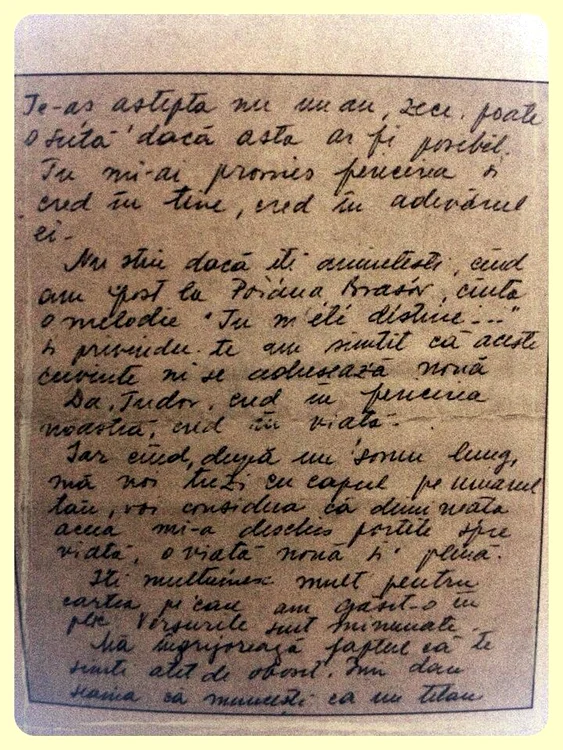 Te-aş aştepta nu un an, zece, poate
o sută dacă asta ar fi posibil.
Tu mi-ai promis fericirea şi
cred în tine, cred în adevărul
ei.
Nu ştiu dacă îţi aminteşti, cînd
am fost la Poiana Braşov, cînta
o melodie "Tu m'éti destiné..."
şi privindu-te am simţit că aceste
cuvinte ni se adresează nouă
Da, Tudor, cred în fericirea
noastră, cred în viaţă.
Iar cînd, după un somn lung,
mă voi trezi cu capul pe umărul
tău, voi considera că dimineaţa
aceea mi-a deschis porţile spre
viaţă, o viaţă nouă şi plină.
Îţi mulţumesc mult pentru
cartea pe care am găsit-o în
plic Versurile sunt minunate.
Mă îngrijorează faptul că te
simţi atît de obosit. Îmi dau
seama că munceşti ca un titan